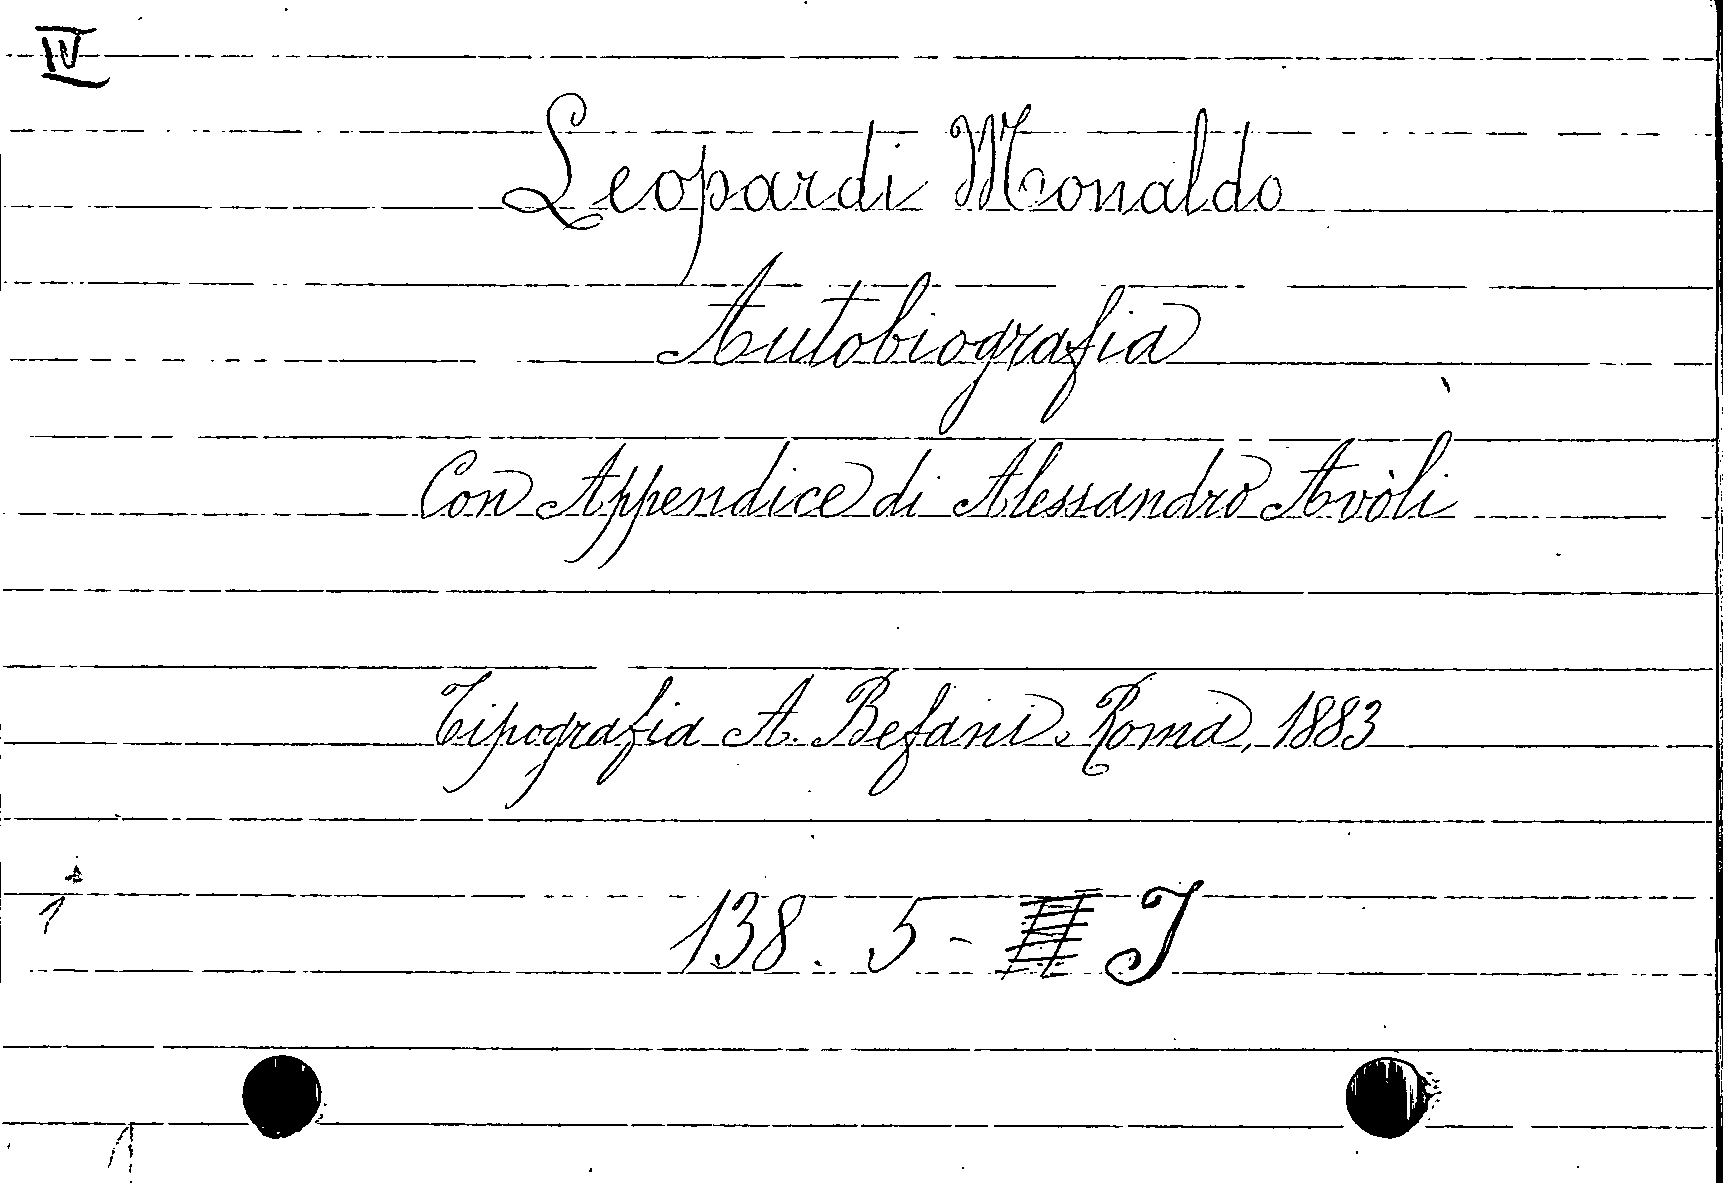 IV
Leopardi Monaldo
Autobiografia
Con Appendice di Alessandro Avòli
Tipografia A. Befani, Roma, 1883
1
138. 5 - I
1